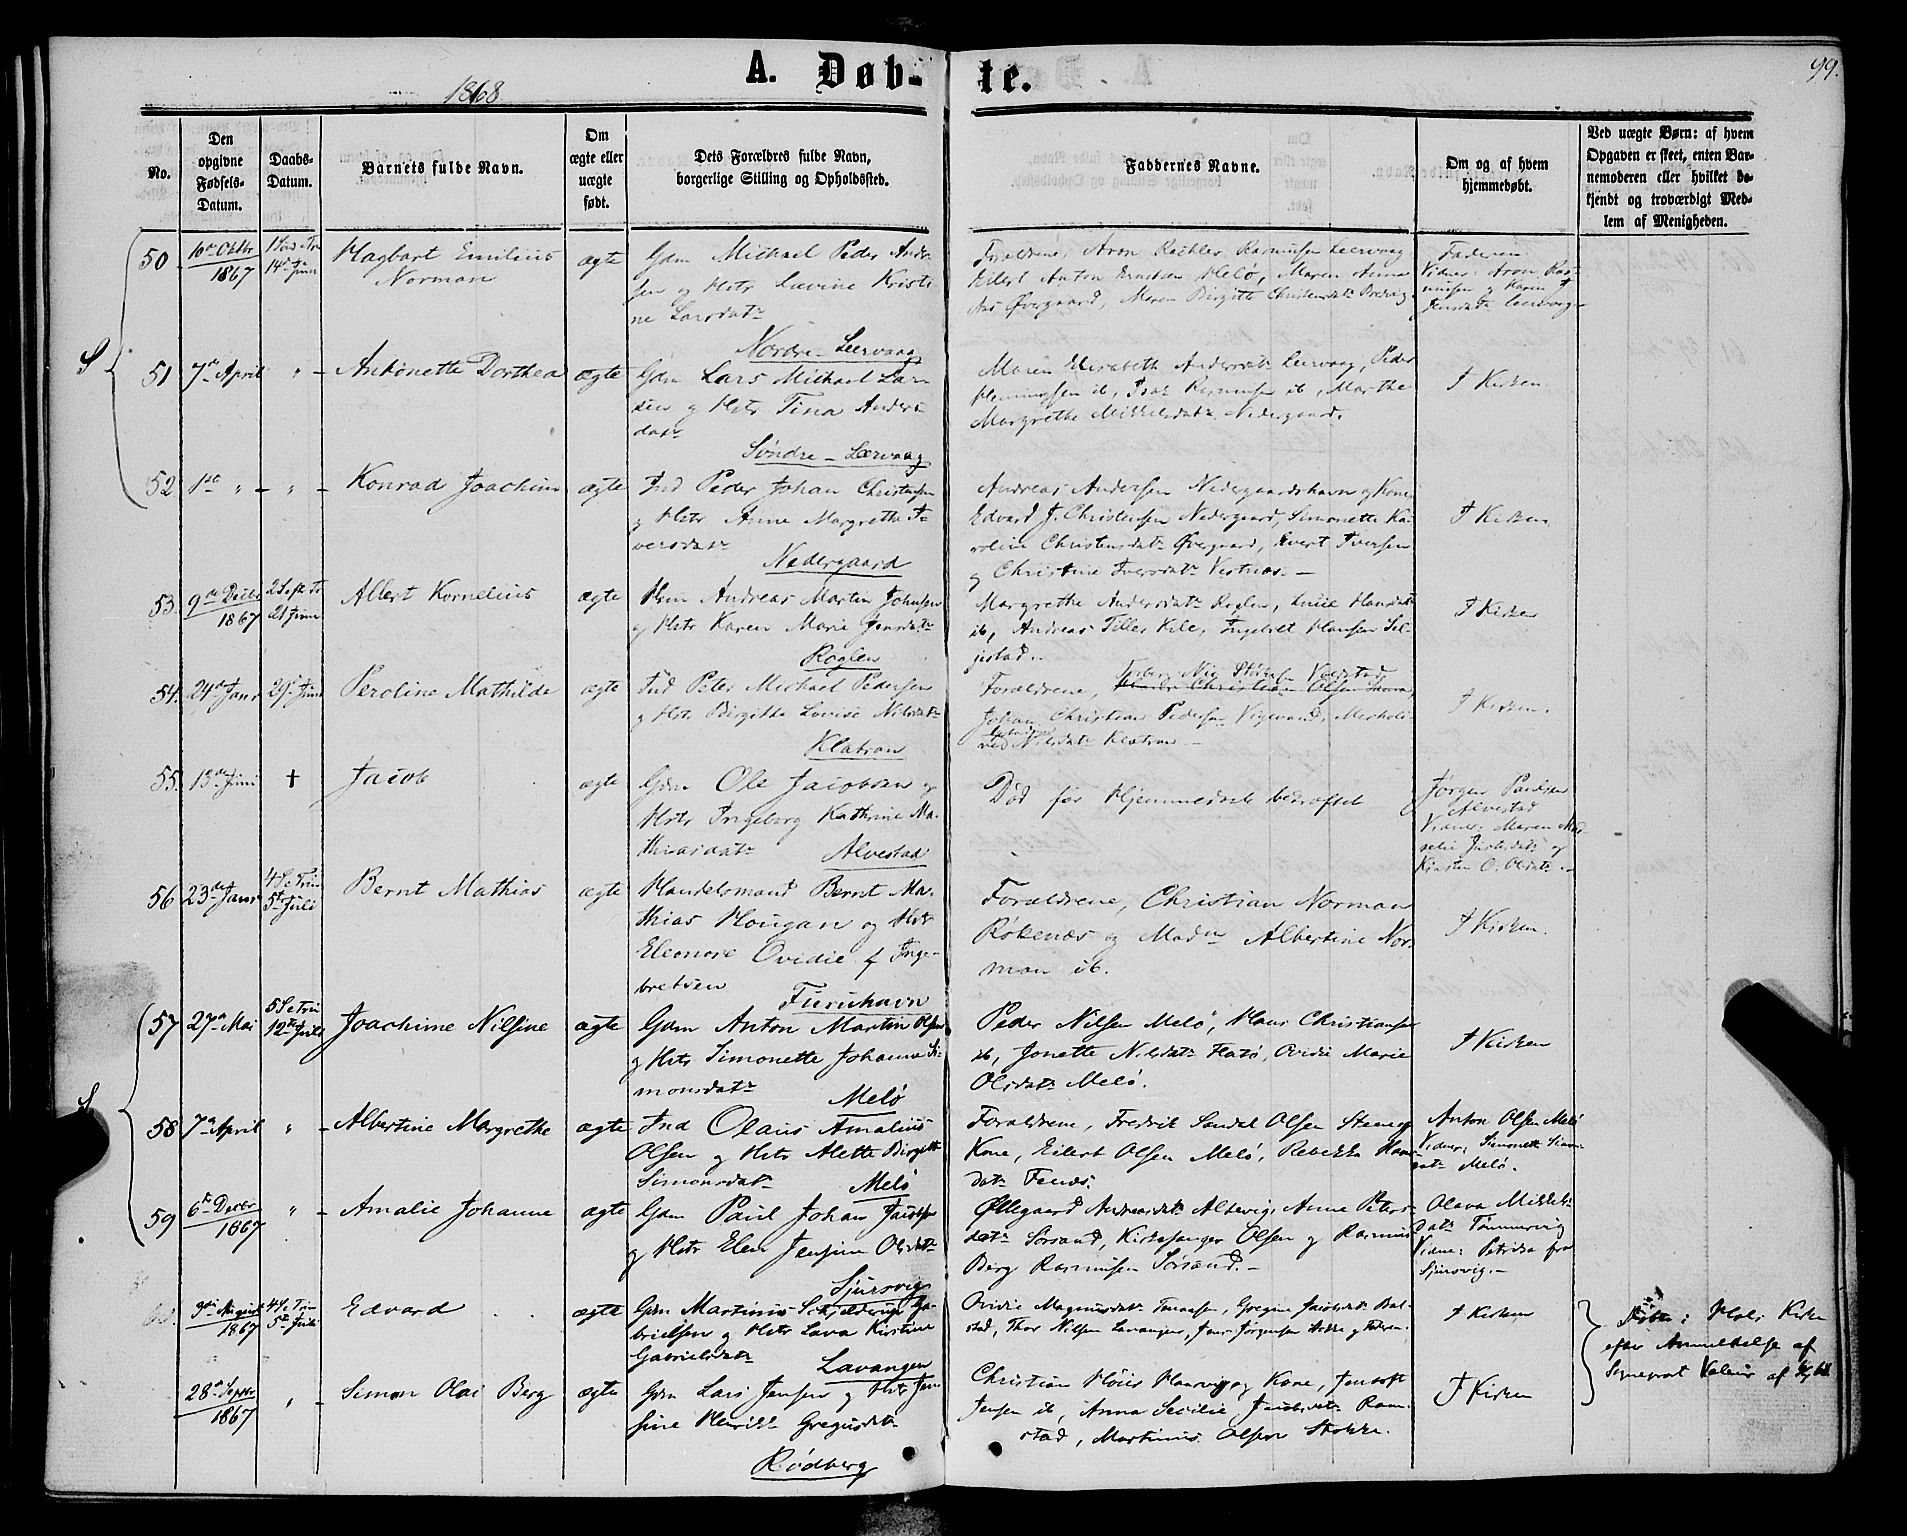 99.
1868
A. Døb-te.
No.
Den opgivne Fødsels-Datum.
Daabs-Datum.
Barnets fulde Navn.
Om ægte eller uægte født.
Dets Forældres fulde Navn, borgerlige Stilling og Opholdssted.
Faddernes Navne.
Om og af hvem hjemmedøbt.
Ved uægte Børn: af hvem Opgaven er skeet, enten Barnemoderen eller hvilket bekjendt og troværdigt Medlem af Menigheden.
50 10de Oktbr 1867 14de Juni
Hagbart Emilius
Norman
ægte
Gdm Michael Peder Andr-
sen og Hstr Lavine Kristi-
ne Larsdatr
Nordre-Leervaag
Forældrene, Aron Rasmusen Leervaag
Eilert Anton Melö, Maren Anna
Øvergaard, Maren Birgitte Christensdatr
Faderen
Vidner: Aron Ras-
musen og Karen
Jensdatr Leervaag
S
51 7de April " -
Antonette Dorthea
ægte
Gdm Lars Michael Lar-
sen og Hstr Tina Anders-
datr
Søndre-Lærvaag
Maren Elisabeth Andersdatr Leervaag, Peder
Henningsen ib, Isak Rasmusen ib, Marthe
Margrethe Mikkelsdatr Nedergaard.
I Kirken
52 1ste " - " -
Konrad Joachim
ægte
Ind Peder Johan Christensen
og Hstr Anne Margrethe I-
versdatr
Nedergaard
Andreas Andersen Nedergaardshavn og Kone
Edvard J. Christensen Nedergaard, Simonette Ka-
roline Christensdatr Øvergaard, Evert Iversen
og Christine Iversdatr Vestnes. -
I Kirken
53. 9de Decbr 1867 21 Juni
Albert Kornelius
ægte
Hm Andreas Martin Johnsen
og Hstr Karen Marie Jensdatr
Röglen
Margrethe Andersdatr Roglen, Hansdatr
ib, Andreas Tiller Kile, Ingebret Hansen Sel-
jestad. -
I Kirken
54. 24de Janr 29de Juni
Peroline Mathilde
ægte
Ind Peter Michael Pedersen
og Hstr Birgitte Lovise Nilsdatr
Klatran
Forældrene,
Christian Olsen
Johan Christian Pedersen Vigevand,
Nilsdatr Klatran -
I Kirken.
55. 13de Juni †
Jacob
ægte
Gdm Ole Jacobsen og
Hstr Ingeborg Kathrine Ma-
thiasdatr
Alvestad
Död før Hjemmedaab bedræftet
Jørgen Paulsen
Alvestad
Vidner: Maren
Jusdatr og
Kirsten O. Olsdatr. -
56 23de Janr 4 S e Trin 5te Juli
Bernt Mathias
ægte
Handelsmand Bernt Ma-
thias Hougan og Hstr
Eleonore Ovidie f Inge-
bretsen
Furuhavn
Forældrene, Christian Norman
RöKenæs og Madm Albertine Nor-
man ib.
I Kirken.
57 27de Mai 5 S e Trin 12te Juli
Joachime Nilsine
ægte
Gdm Anton Martin Olsen
og Hstr Simonette Johanna Si-
monsdatr
Melö
Peder Nilsen Melö, Hans Christiansen
ib, Jonette Nilsdatr Flatö, Ovidie Marie
Olsdatr Melö.
I Kirken
S
58 7de April " -
Albertine Margrethe
ægte
Ind Olaus Amalius
Olsen og Hstr Alette Birgitte
Simonsdatr
Melö
Forældrene, Fredrik Sandel Olsen Steen og
Kone, Eilert Olsen Melö, Rebekka Hans-
datr Fenes.
Anton Olsen Melö
Vidner: Simonette Simons-
datr Melö.
59 6te Decbr 1867 " -
Amalie Johanne
ægte
Gdm Paul Johan Jacobsen
og Hstr Elen Jensine Olsdatr
Sjursvig
Øllegaard Andreasdatr Altevig, Anna Peters-
datr Sørsand, Kirkesanger Olsen og Rasmus
Berg Rasmusen Sørsand. -
Olava Mikkels-
datr Tømmervig
Vidne: Petrika fra
Sjursvig. -
9de August 1867 4 S e Trin 5te Juli
Edvard
ægte
Gdm Martinus Schjelderup Ga-
brielsen og Hstr Lava Kirstine
Gabrielsdatr
Lavangen
Ovidie Magnusdatr, Gregine Jacobsdatr Bal-
stad, Thor Nilsen Lavangen, Jens Jørgensen og Faderen.
I Kirken
Døbte i Hols Kirke
efter Anmeldelse af
Sognepræst
28de Septbr 1867 " -
Simon Olai Berg
ægte
Gdm Lars Jensen og Hstr Jen-
sine Henrikke Gregusdatr
Rödberg
Christian og Kone, Jentoft
Jensen ib, Anna Secilie Jacobsdatr Ram-
stad, Martinus Olsen Stokke.
I Kirken